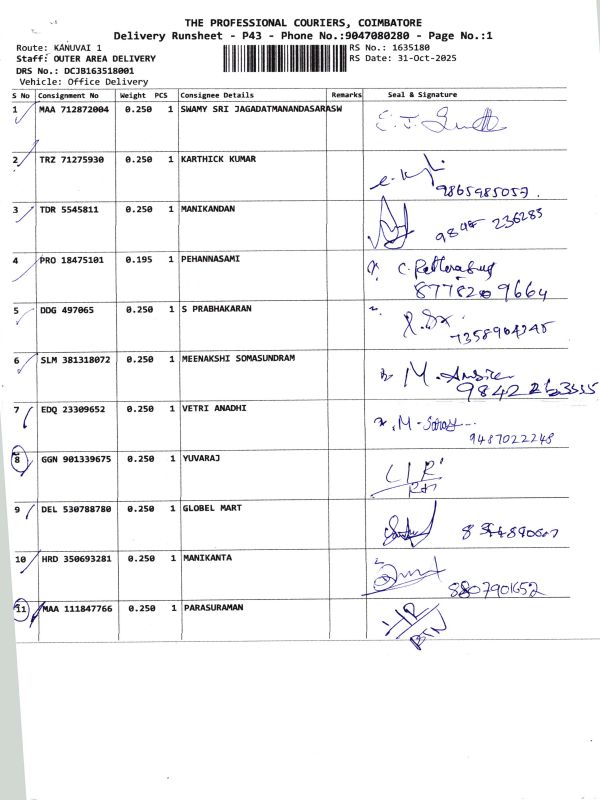 THE PROFESSIONAL COURIERS, COIMBATORE
Delivery Runsheet - P43 - Phone No.:9047080280 - Page No.:1
Route: KANUVAI 1 RS No.: 1635180
Staff: OUTER AREA DELIVERY RS Date: 31-Oct-2025
DRS No.: DCJB163518001
Vehicle: Office Delivery
S No Consignment No Weight PCS Consignee Details Remarks Seal & Signature
1 MAA 712872004 0.250 1 SWAMY SRI JAGADATMANANDASARASW
2 TRZ 71275930 0.250 1 KARTHICK KUMAR
9865985057.
3 TDR 5545811 0.250 1 MANIKANDAN
236283
4 PRO 18475101 0.195 1 PEHANNASAMI
9664
5 DDG 497065 0.250 1 S PRABHAKARAN
6 SLM 381318072 0.250 1 MEENAKSHI SOMASUNDRAM
M.
9842
7 EDQ 23309652 0.250 1 VETRI ANADHI
9487022248
8 GGN 901339675 0.250 1 YUVARAJ
9 DEL 530788780 0.250 1 GLOBEL MART
10 HRD 350693281 0.250 1 MANIKANTA
8807901652
11 MAA 111847766 0.250 1 PARASURAMAN